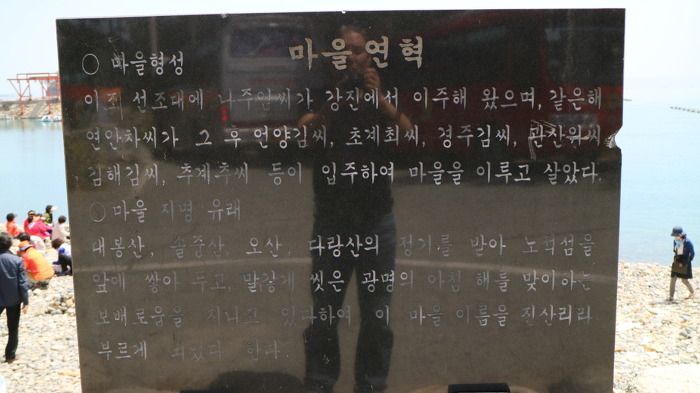 마을연혁
○ 마을형성
이조 선조대에 나주임씨가 강진에서 이주해 왔으며, 같은해
연안차씨가 그 후 언양김씨, 초계최씨, 경주김씨, 관산위씨
김해김씨, 추계추씨 등이 입주하여 마을을 이루고 살았다.
○ 마을 지명 유래
대봉산, 솔중산 오산, 다랑산의 정기를 받아 노적섬을
앞에 쌓아 두고, 말갛게 씻은 광명의 아침 해를 맞이하는
보배로움을 지니고 있다하여 이 마을 이름을 진산리라
부르게 되었다 한다.